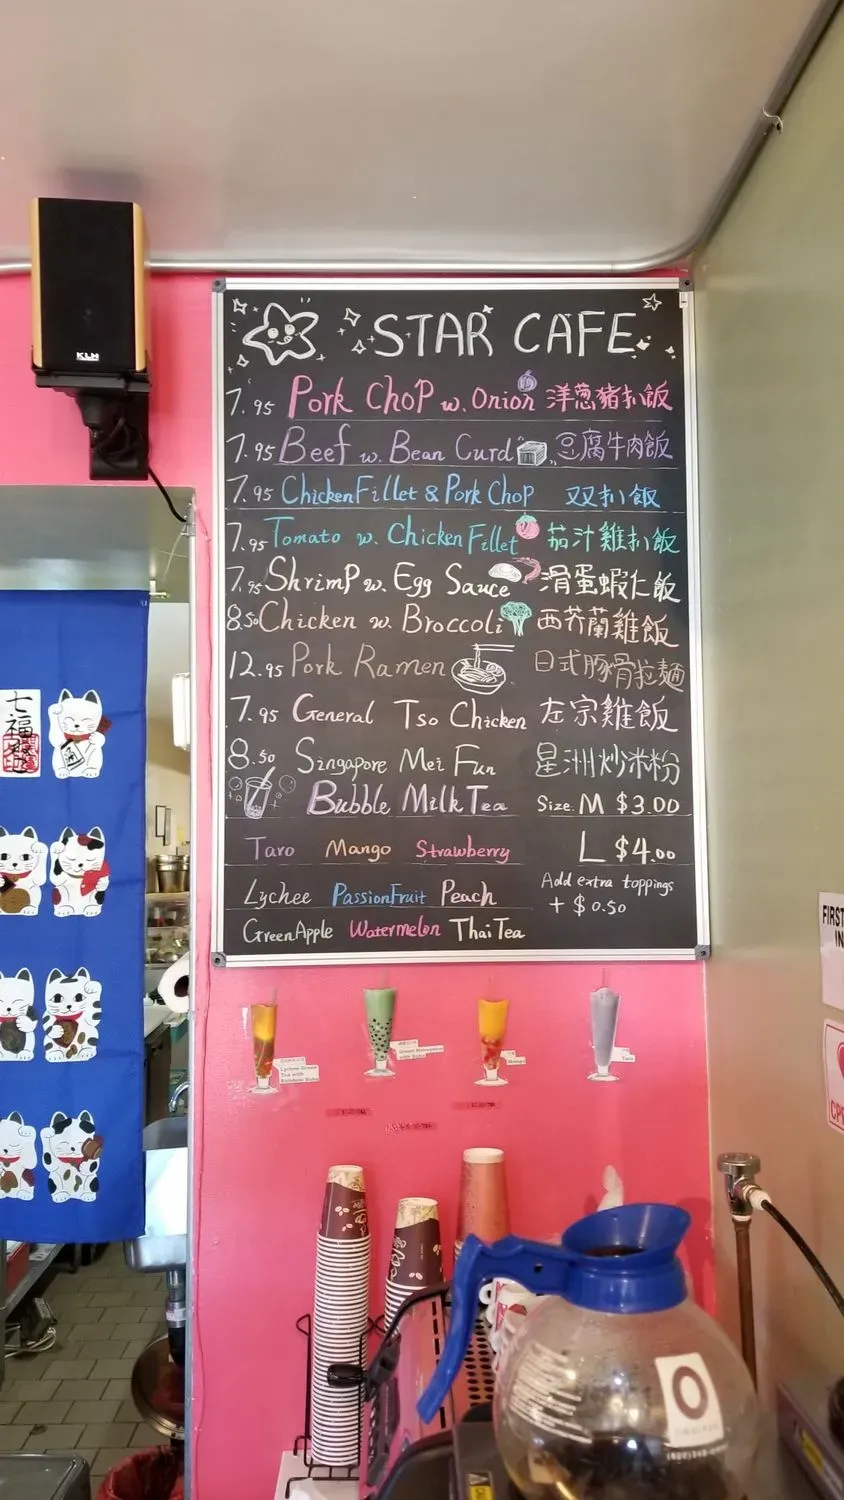 STAR CAFE
7.95 Pork Chop w. Onion 洋蔥豬扒飯
7.95 Beef w. Bean Curd 豆腐牛肉飯
7.95 Chicken Fillet & Pork Chop 双扒飯
7.95 Tomato w. Chicken Fillet 茄汁雞扒飯
7.95 Shrimp w. Egg Sauce 滑蛋蝦仁飯
8.50 Chicken w. Broccoli 西芥蘭雞飯
12.95 Pork Ramen 日式豚骨拉麵
7.95 General Tso Chicken 左宗雞飯
8.50 Singapore Mei Fun 星洲炒米粉
Bubble Milk Tea Size. M $3.00
Taro Mango Strawberry L $4.00
Lychee PassionFruit Peach
Add extra toppings
+ $0.50
GreenApple Watermelon Thai Tea
KLH
七福
FIRST
IN
CPR
Lychee Green
Tea with
Rainbow Boba
Green Honeydew
with Boba
Mango
Taro